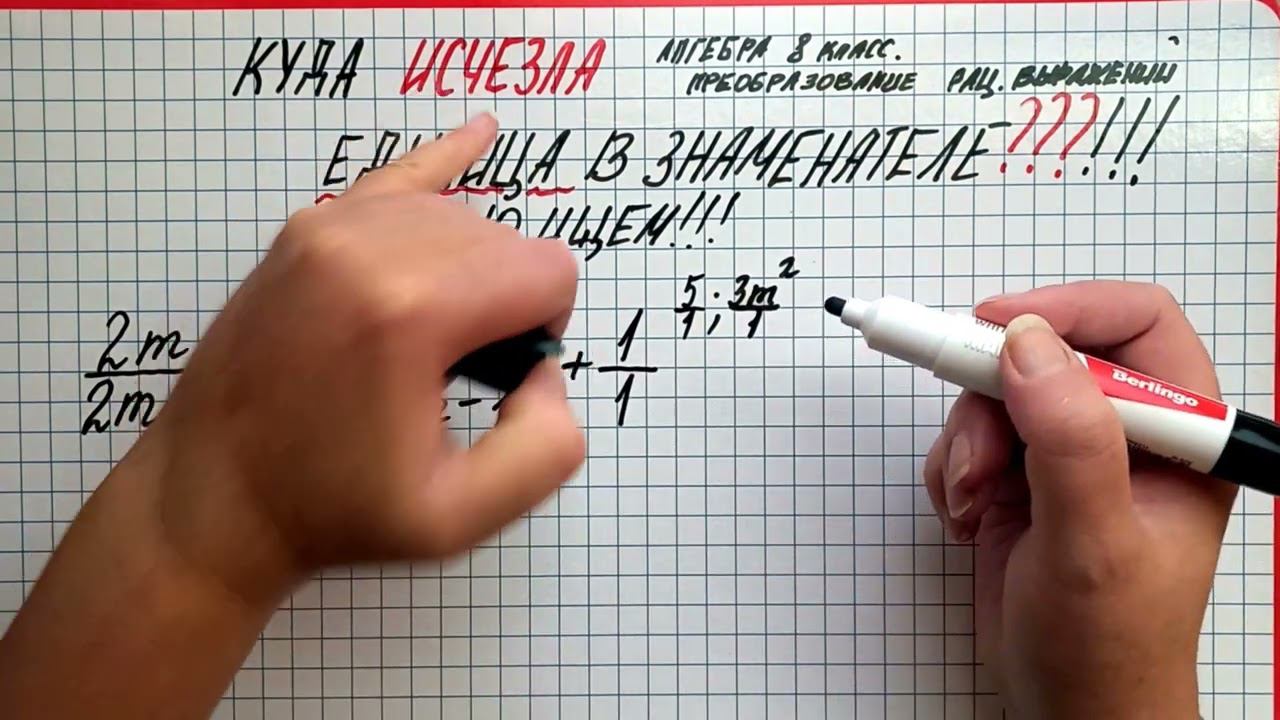 КУДА ИСЧЕЗЛА
АЛГЕБРА 8 КЛАСС.
ПРЕОБРАЗОВАНИЕ РАЦ. ВЫРАЖЕНИЙ
В ЗНАМЕНАТЕЛЕ-???!!!
ИЩЕМ!!!
5/1 ; 3m²/1
2m/2m + 1/1
Berlingo